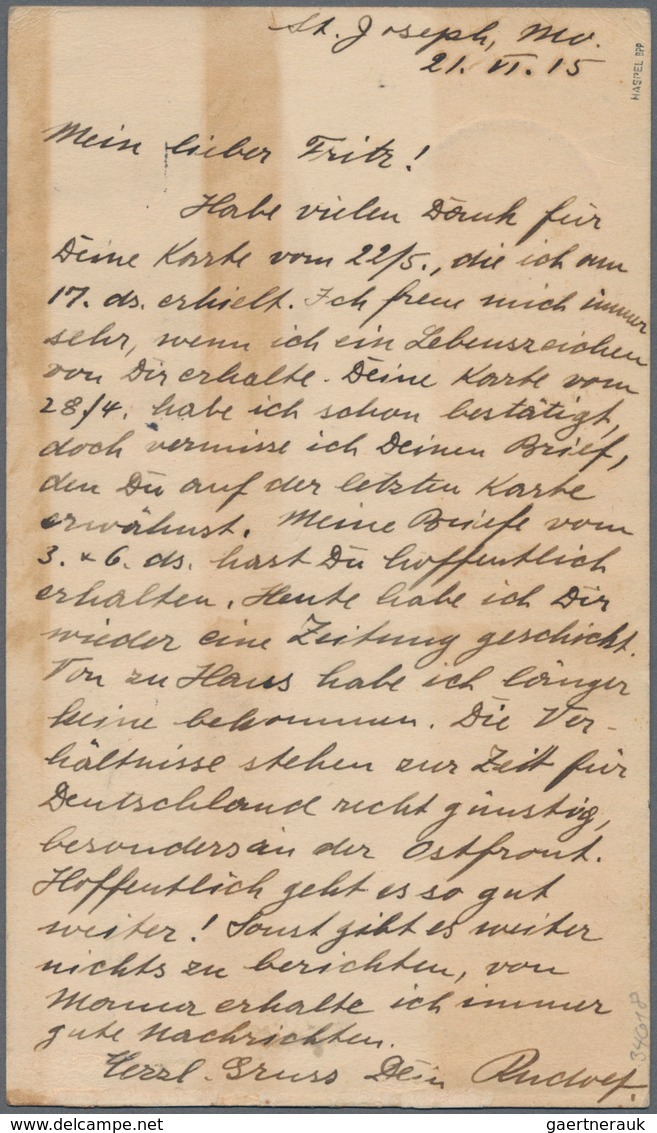 St. Joseph, Mo.
21. VI. 15
HASPEL BPP
Mein lieber Fritz!
Habe vielen Dank für
Deine Karte vom 22/5., die ich am
17. ds. erhielt. Ich freue mich immer
sehr, wenn ich ein Lebenszeichen
von Dir erhalte. Deine Karte vom
28/4. habe ich schon bestätigt,
doch vermisse ich Deinen Brief,
den Du auf der letzten Karte
erwähnst. Meine Briefe vom
3. & 6. ds. hast Du hoffentlich
erhalten. Heute habe ich Dir
wieder eine Zeitung geschickt.
Von zu Haus habe ich länger
keine bekommen. Die Ver-
hältnisse stehen zur Zeit für
Deutschland recht günstig,
besonders an der Ostfront.
Hoffentlich geht es so gut
weiter! Sonst gibt es weiter
nichts zu berichten, von
Mama erhalte ich immer
gute Nachrichten.
Herzl. Gruss Dein Rudolf.
34618
gaertnerauk